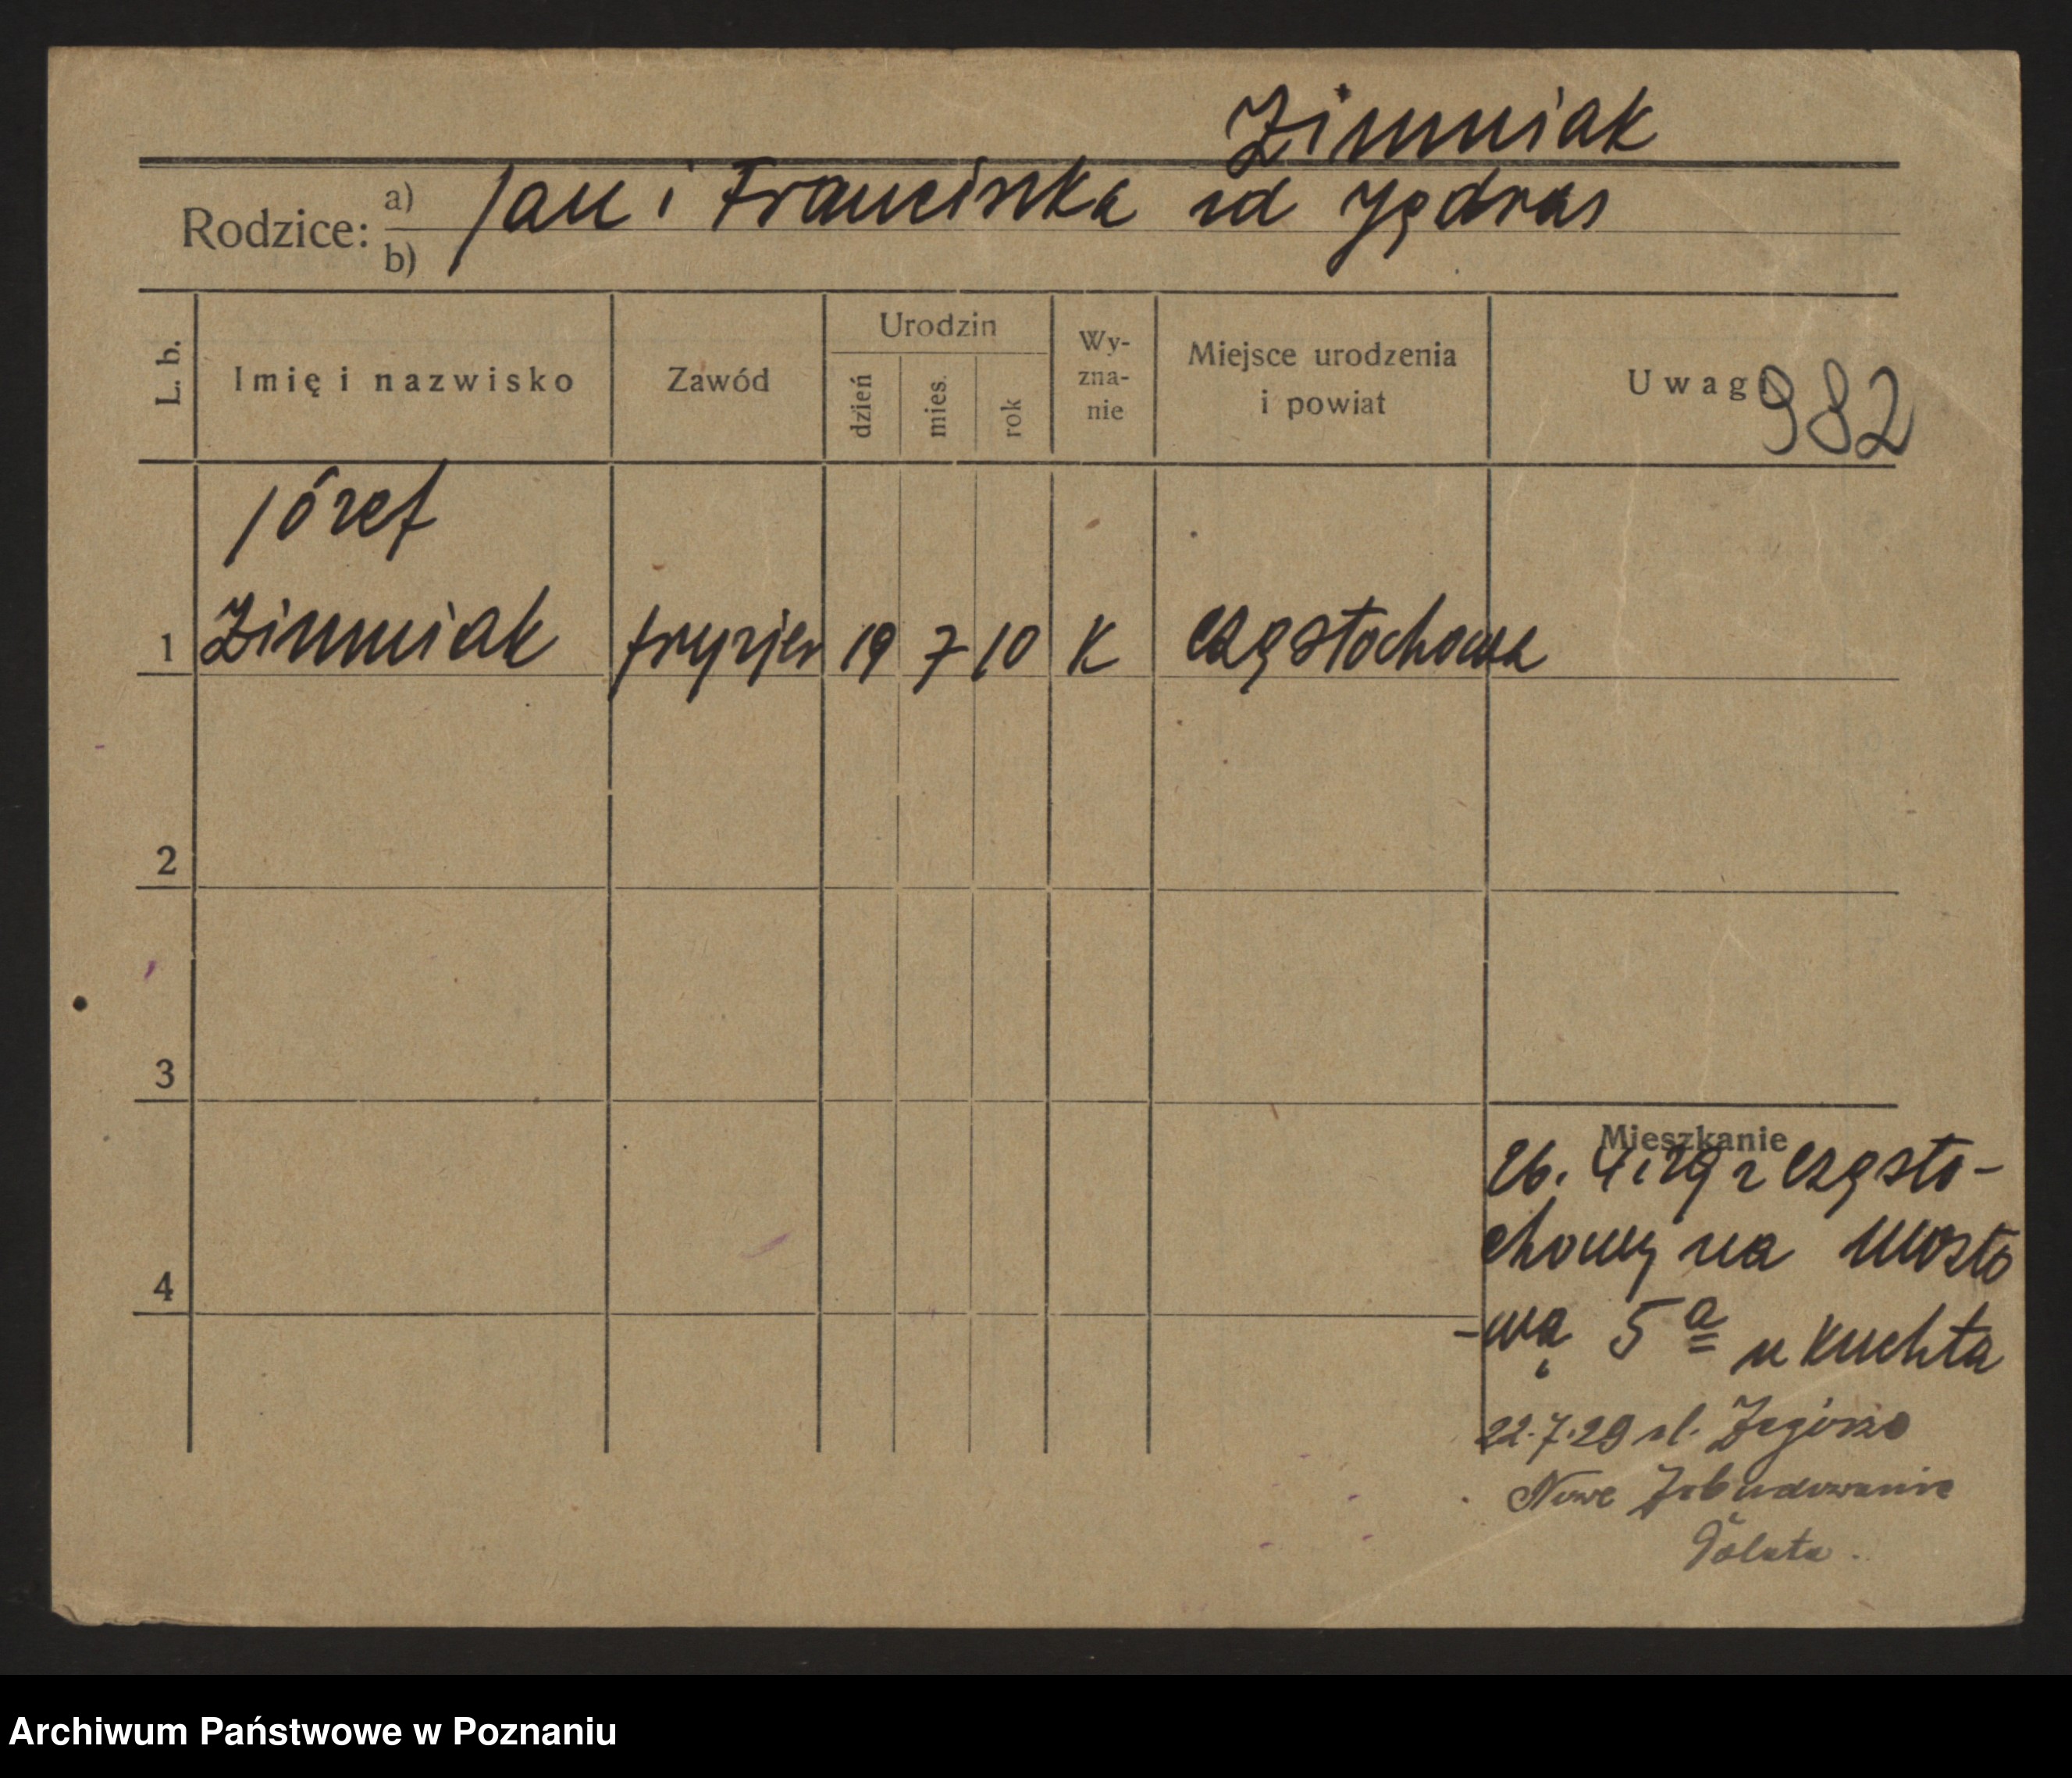 Zimniak
Rodzice: a) Jan i Franciszka zd Jędras
b)
L. b. Imię i nazwisko Zawód Urodzin dzień mies. rok Wy-zna-nie Miejsce urodzenia i powiat Uwagi 982
Józef
1 Zimniak fryzjer 19 7 10 K Częstochowa
2
3
Mieszkanie
26. 4. 29 z Często-
chowy na Mosto
4
-wą 5a u Kuchta
22.7.29 ul. Zagórze
Nowe Zabudowanie
Archiwum Państwowe w Poznaniu